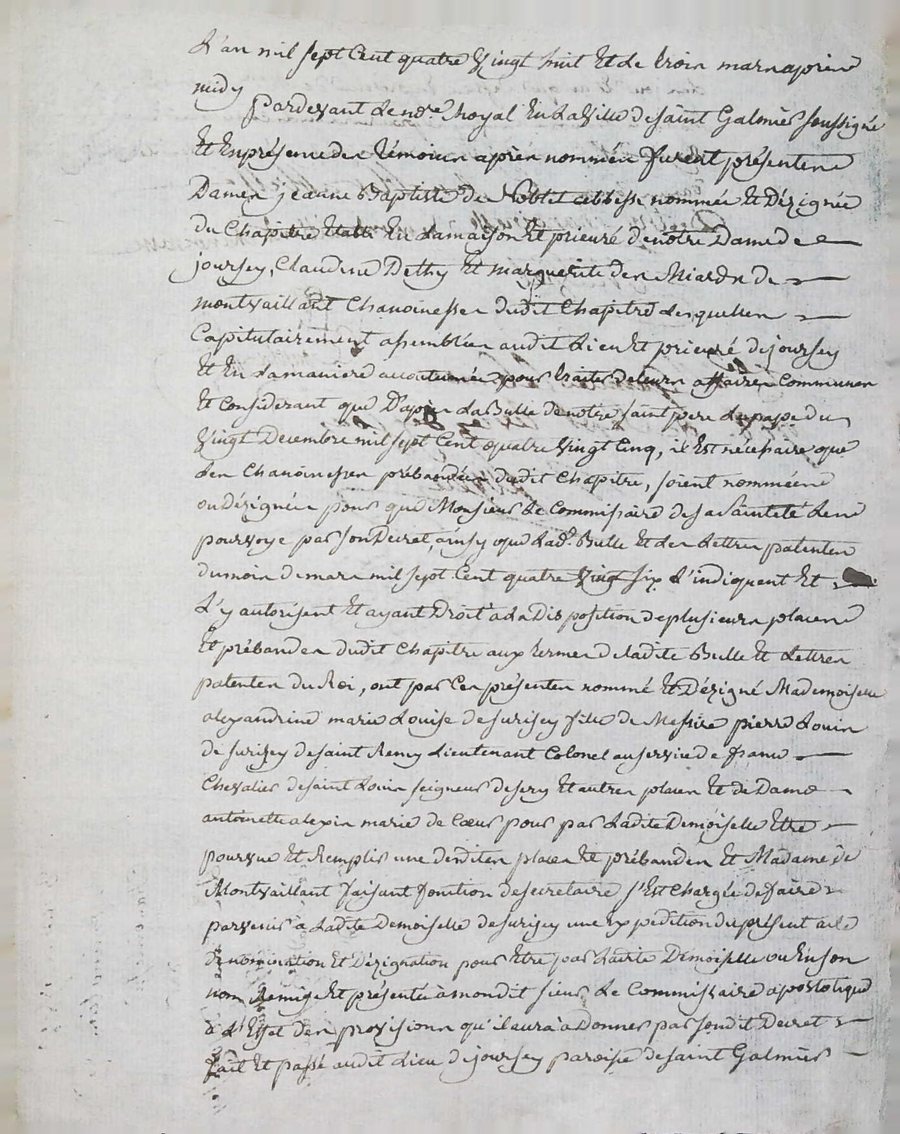 L'an mil sept Cent quatre Vingt huit Et de trois mars après
midy
Pardevant Le no.re Royal En La Ville de Saint Galmier soussigné
Et En présence des témoins après nommés furent présentes
Dames jeanne Baptiste de Noblet abbesse nommée Et Dézignée
du Chapitre Etabli En La maison Et prieuré de notre Dame de
joursey, Claudine Dethy Et marguerite des Miards de
montvaillant Chanoinesses dudit Chapitre Lesquelles
Capitulairement assemblées audit Lieu Et prieuré de joursey
Et En La maniere accoutumée pour traiter de leurs affaires Communes
Et Considerant que D'après La Bulle de notre saint pere Le pape du
Vingt Decembre mil sept Cent quatre Vingt Cinq, il Est nécéssaire que
des Chanoinesses prébandées dudit Chapitre, soient nommées
ou dézignées pour que Monsieur Le Commissaire de sa Sainteté Les
pourvoye par son Decret, ainsy que Lad.e Bulle Et Les Lettres patentes
du mois de mars mil sept Cent quatre Vingt Six L'indiquent Et
L'y autorisent Et ayant Droit à La Disposition de plusieurs places
Et prébandes dudit Chapitre aux termes de ladite Bulle Et Lettres
patentes du Roi, ont par Ces présentes nommé Et Dézigné Mademoiselle
alexandrine marie Louise de surisey fille de Messire pierre Louis
de surisey de saint Remy Lieutenant Colonel au service de france
Chevalier de saint Louis seigneur de sery Et autres places Et de Dame
antoinette alexis marie de Cœur pour par Ladite Demoiselle Etre
pourvue Et Remplir une desdites places Et prébandes Et Madame de
Montvaillant faisant fonction de secretaire s'Est Chargée de faire
parvenir à Ladite Demoiselle de surisey une Expédition du présent acte
de nomination Et Dézignation pour Etre par Ladite Demoiselle ou En son
nom Remise Et présentée à mondit sieur Le Commissaire apostolique
à L'Effet des provisions qu'il aura à Donner par sondit Decret
fait Et passé audit Lieu de joursey paroisse de saint Galmier